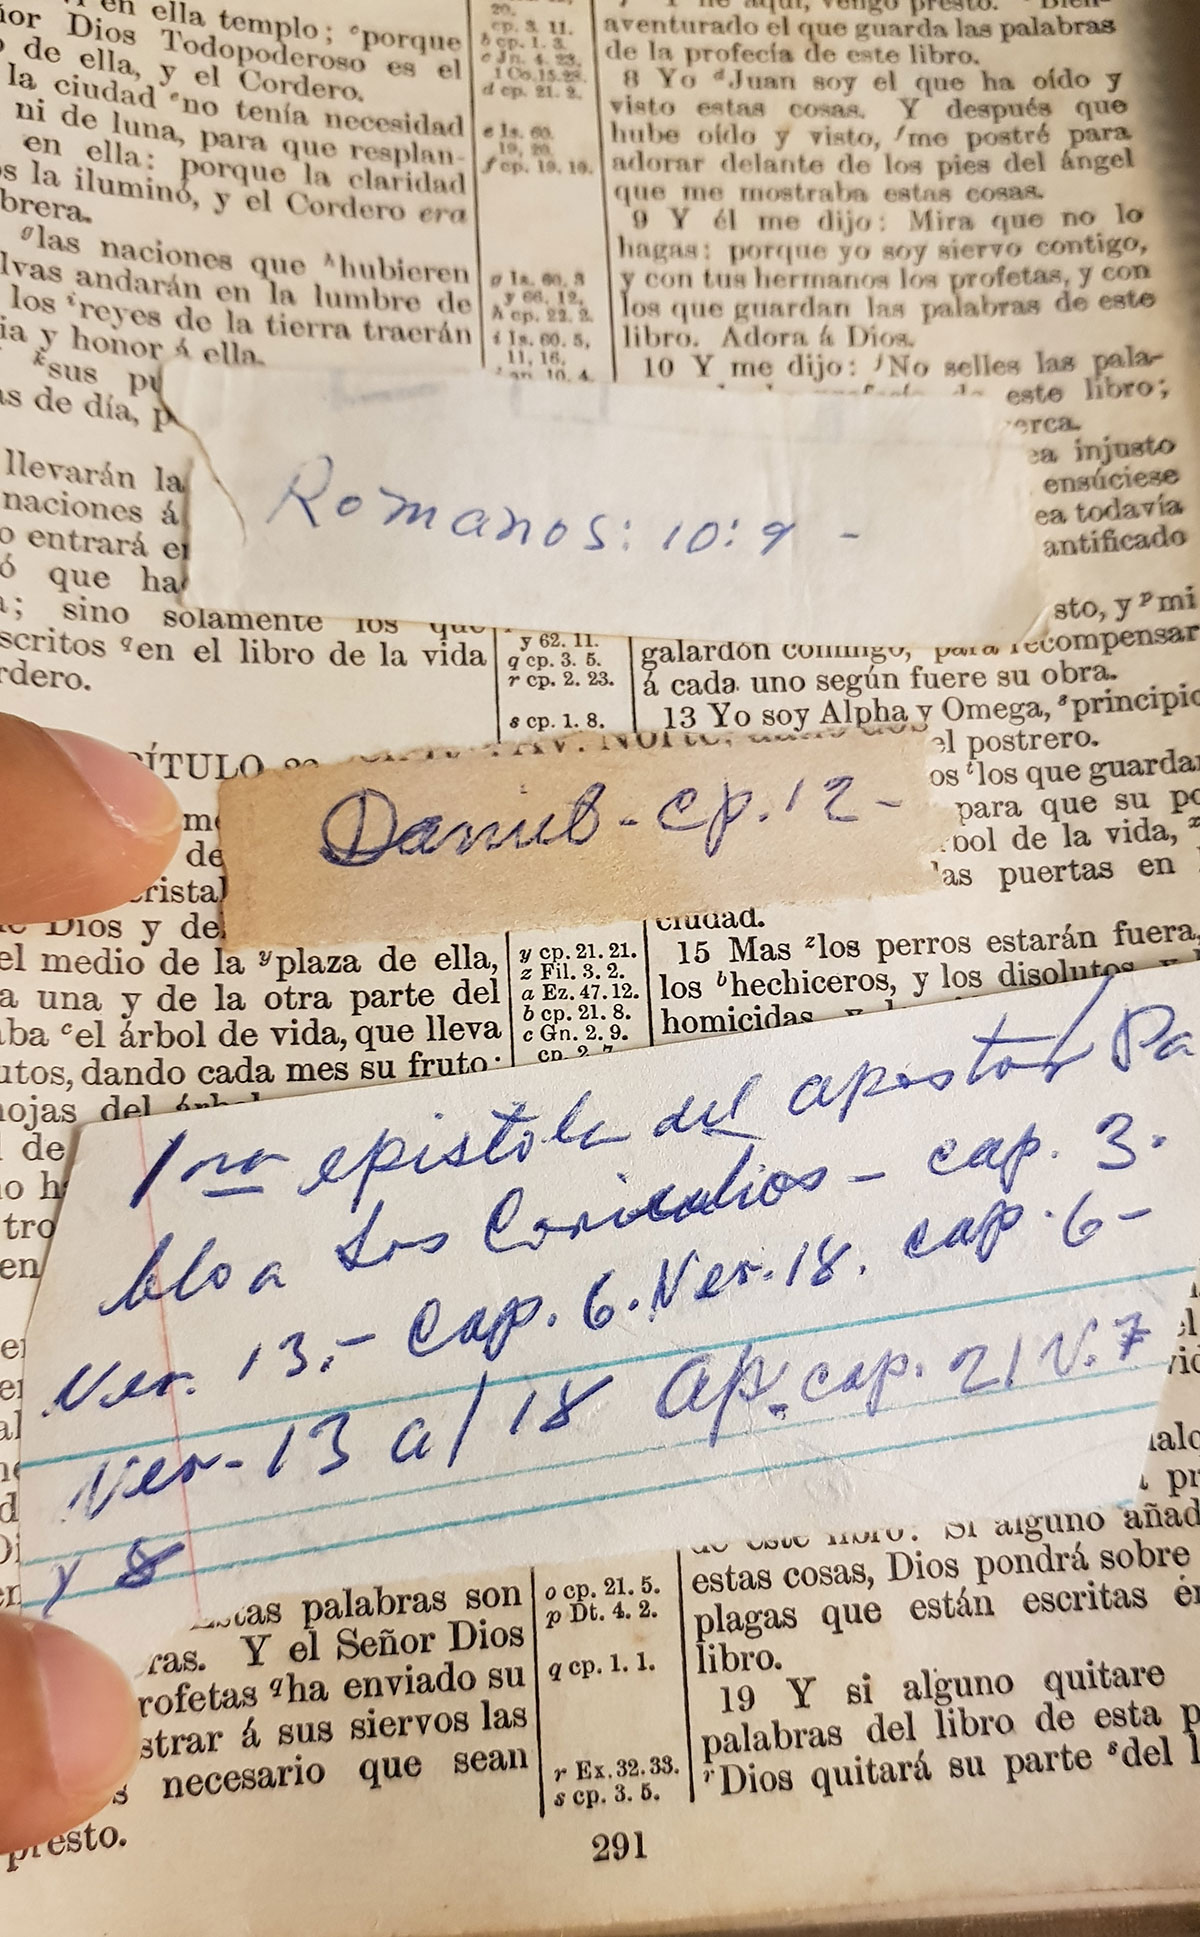 en ella templo; ᵉporque
Dios Todopoderoso es el
de ella, y el Cordero.
la ciudad ᵉno tenía necesidad
ni de luna, para que resplan-
en ella: porque la claridad
la iluminó, y el Cordero era
ᵍlas naciones que ʰhubieren
andarán en la lumbre de
los ⁱreyes de la tierra traerán
y honor á ella.
ᵏsus
de día,
llevarán la
naciones á
entrará
que
sino solamente los que
ᑫen el libro de la vida
20.
cp. 3. 11.
b cp. 1. 3.
c Jn. 4. 23.
1 Co. 15. 28.
d cp. 21. 2.
e Is. 60.
19, 20.
f cp. 19. 10.
g Is. 60. 3
y 66. 12.
h cp. 22. 2.
i Is. 60. 5,
11, 16.
10. 4.
y 62. 11.
q cp. 3. 5.
r cp. 2. 23.
s cp. 1. 8.
aventurado el que guarda las palabras
de la profecía de este libro.
8 Yo ᵈJuan soy el que ha oído y
visto estas cosas. Y después que
hube oído y visto, ᶠme postré para
adorar delante de los pies del ángel
que me mostraba estas cosas.
9 Y él me dijo: Mira que no lo
hagas: porque yo soy siervo contigo,
y con tus hermanos los profetas, y con
los que guardan las palabras de este
libro. Adora á Dios.
10 Y me dijo: ʲNo selles las pala-
este libro;
injusto
ensúciese
todavía
y ᵖmi
galardón conmigo, para recompensar
á cada uno según fuere su obra.
13 Yo soy Alpha y Omega, ˢprincipio
el postrero.
ᵗlos que guardan
para que su
de la vida,
las puertas en
ciudad.
15 Mas ᶻlos perros estarán fuera,
los ᵇhechiceros, y los disolutos,
homicidas,
Romanos: 10:9 -
Daniel - cp. 12 -
de
Dios y
el medio de la ʸplaza de ella,
una y de la otra parte del
ᶜel árbol de vida, que lleva
dando cada mes su fruto:
del
y cp. 21. 21.
z Fil. 3. 2.
a Ez. 47. 12.
b cp. 21. 8.
c Gn. 2. 9.
1ra epistola del apostol Pa
blo a Los Corintios - cap. 3.
Ver. 13. - Cap. 6. Ver. 18. cap. 6 -
Ver - 13 al 18 Ap. cap. 21 V. 7
y 8
palabras son
Y el Señor Dios
ᑫha enviado su
á sus siervos las
necesario que sean
presto.
o cp. 21. 5.
p Dt. 4. 2.
q cp. 1. 1.
r Ex. 32. 33.
s cp. 3. 5.
de este libro: Si alguno
estas cosas, Dios pondrá sobre
plagas que están escritas
libro.
19 Y si alguno quitare
palabras del libro de esta
ʳDios quitará su parte ˢdel
291